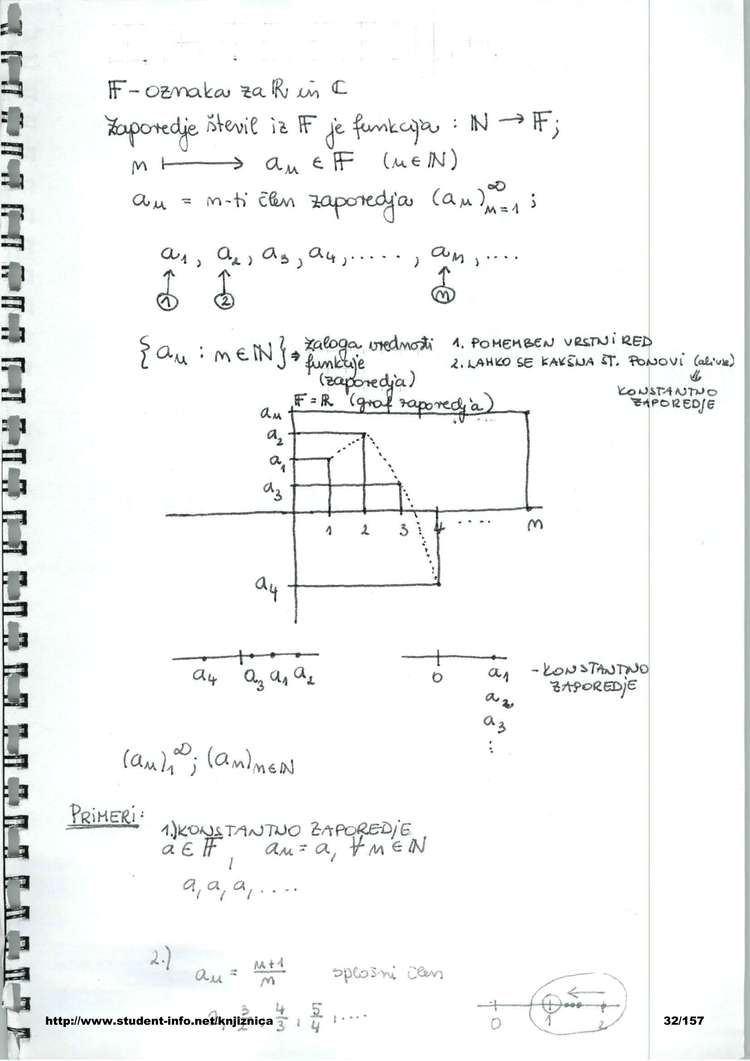 𝔽 - oznaka za ℝ in ℂ
Zaporedje števil iz 𝔽 je funkcija : ℕ → 𝔽;
n ⟼ aₙ ∈ 𝔽 (n ∈ ℕ)
aₙ = n-ti člen zaporedja (aₙ)_{n=1}^∞ ;
a₁, a₂, a₃, a₄, ..... , aₙ, ....
↑ ↑ ↑
① ② ⓝ
{aₙ : n ∈ ℕ} → zaloga vrednosti
funkcije
(zaporedja)
1. POMEMBEN VRSTNI RED
2. LAHKO SE KAKŠNA ŠT. PONOVI (ali vse)
⇓
KONSTANTNO
ZAPOREDJE
𝔽 = ℝ (graf zaporedja)
aₙ
a₂
a₁
a₃
1 2 3 4 .... n
a₄
a₄ a₃ a₁ a₂
0 a₁
a₂
a₃
⋮
- KONSTANTNO
ZAPOREDJE
(aₙ)₁^∞ ; (aₙ)_{n∈ℕ}
PRIMERI:
1.) KONSTANTNO ZAPOREDJE
a ∈ 𝔽 , aₙ = a, ∀n ∈ ℕ
a, a, a, ....
2.)
aₙ = (n+1)/n splošni člen
3/2, 4/3, 5/4, ....
0 1 2
http://www.student-info.net/knjiznica
32/157